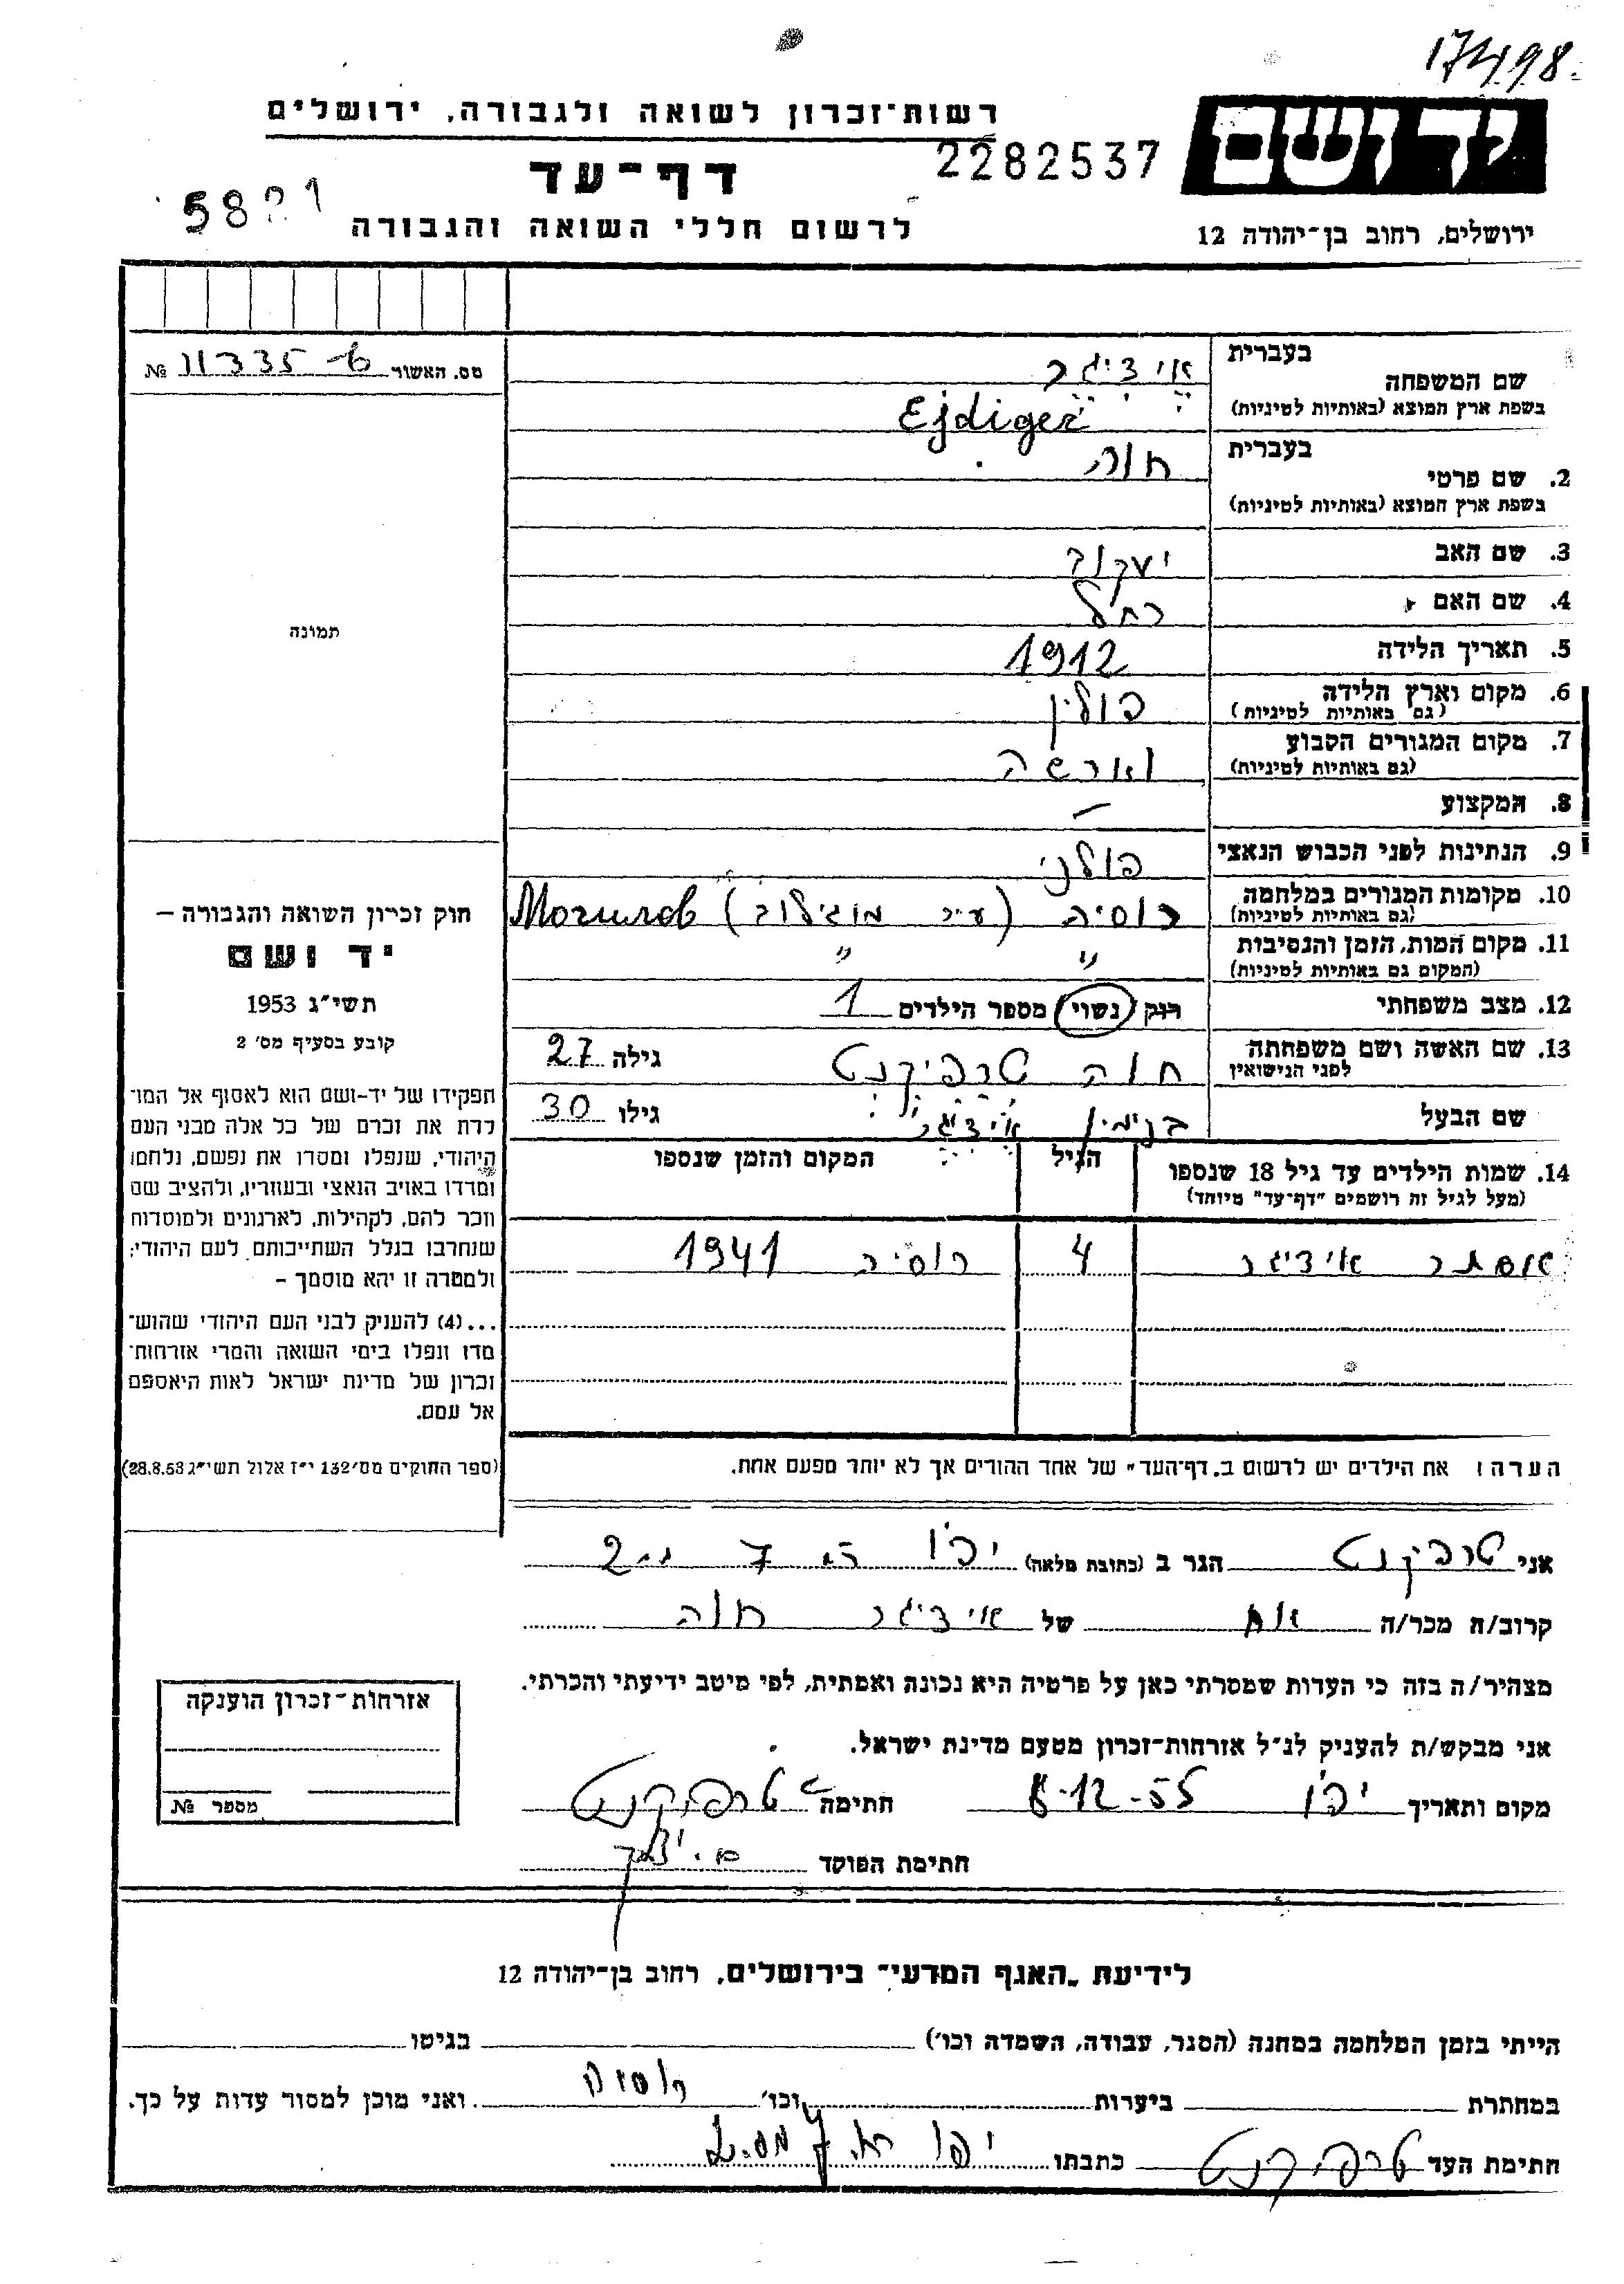 17498.
רשות־זכרון לשואה ולגבורה, ירושלים
יד ושם
2282537
דף־עד
58
לרשום חללי השואה והגבורה
ירושלים, רחוב בן־יהודה 12
מס. האשור 11335-ט №
בעברית
שם המשפחה אידיגר
בשפת ארץ המוצא (באותיות לטיניות) Ejdiger
בעברית
2. שם פרטי חוה
בשפת ארץ המוצא (באותיות לטיניות)
3. שם האב יעקוב
4. שם האם רחל
5. תאריך הלידה 1912
6. מקום וארץ הלידה פולין
(גם באותיות לטיניות)
7. מקום המגורים הקבוע וארשה
(גם באותיות לטיניות)
8. המקצוע –
9. הנתינות לפני הכבוש הנאצי פולני
10. מקומות המגורים במלחמה רוסיה (עיר מוגילוב) Могилов
(גם באותיות לטיניות)
11. מקום המות, הזמן והנסיבות " "
(המקום גם באותיות לטיניות)
12. מצב משפחתי רוק / נשוי / מספר הילדים 1
13. שם האשה ושם משפחתה חוה טרפיקנט גילה 27
לפני הנישואין
שם הבעל בנימין אידיגר גילו 30
14. שמות הילדים עד גיל 18 שנספו הגיל המקום והזמן שנספו
(מעל לגיל זה רושמים "דף־עד" מיוחד)
אסתר אידיגר 4 רוסיה 1941
הערה: את הילדים יש לרשום ב„דף־העד" של אחד ההורים אך לא יותר מפעם אחת.
תמונה
חוק זכרון השואה והגבורה –
יד ושם
תשי"ג 1953
קובע בסעיף מס' 2
תפקידו של יד-ושם הוא לאסוף אל המו־
לדת את זכרם של כל אלה מבני העם
היהודי, שנפלו ומסרו את נפשם, נלחמו
ומרדו באויב הנאצי ובעוזריו, ולהציב שם
וזכר להם, לקהילות, לארגונים ולמוסדות
שנחרבו בגלל השתייכותם לעם היהודי;
ולמטרה זו יהא מוסמך –
...(4) להעניק לבני העם היהודי שהוש־
מדו ונפלו בימי השואה והמרי אזרחות־
זכרון של מדינת ישראל לאות היאספם
אל עמם.
(ספר החוקים מס' 132 י"ז אלול תשי"ג 28.8.53)
אני טרפיקנט הגר ב (כתובת מלאה) יפו 7 2
קרוב/ה מכר/ה אח של אידיגר חוה
מצהיר/ה בזה כי העדות שמסרתי כאן על פרטיה היא נכונה ואמתית, לפי מיטב ידיעתי והכרתי.
אני מבקש/ת להעניק לנ"ל אזרחות־זכרון מטעם מדינת ישראל.
מקום ותאריך יפו 8-12-55 חתימה טרפיקנט
חתימת הפוקד
אזרחות־זכרון הוענקה
מספר №
לידיעת „האגף המדעי" בירושלים, רחוב בן־יהודה 12
הייתי בזמן המלחמה במחנה (הסגר, עבודה, השמדה וכו') בגיטו
במחתרת ביערות וכו' רוסיה ואני מוכן למסור עדות על כך.
חתימת העד טרפיקנט כתבתו יפו